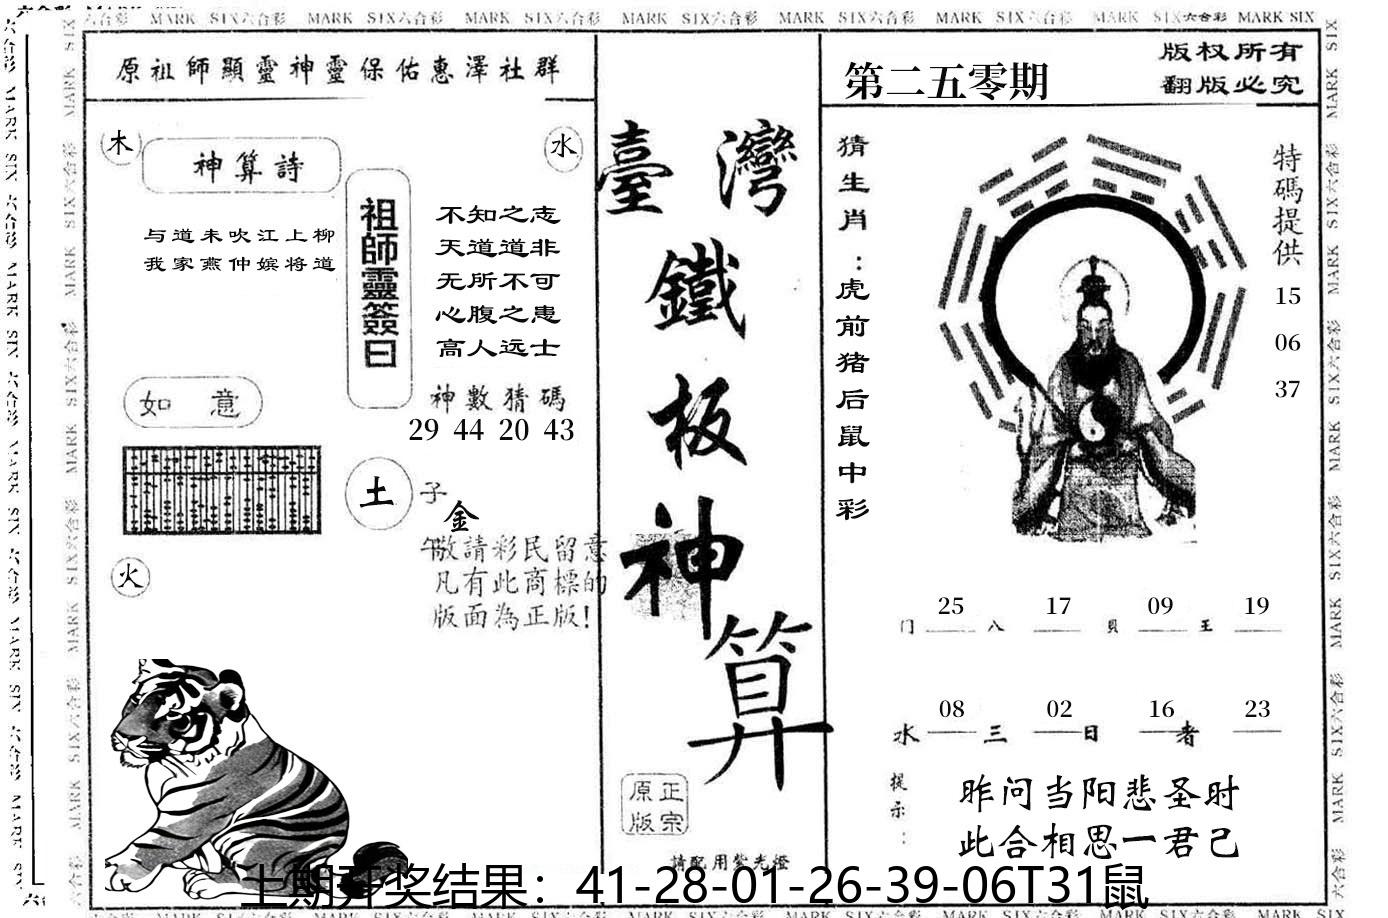 MARK SIX六合彩 MARK SIX六合彩 MARK SIX六合彩 MARK SIX六合彩 MARK SIX六合彩 MARK SIX六合彩 MARK SIX六合彩 MARK SIX
原祖師顯靈神靈保佑惠澤社群
木
水
神算詩
与道未吹江上柳
我家燕仲嫔将道
祖師靈簽曰
不知之志
天道道非
无所不可
心腹之患
高人远士
神數猜碼
29 44 20 43
如意
土
子
金
午
火
敬請彩民留意
凡有此商標的
版面為正版!
臺灣
鐵
板
神
算
正宗
原版
請配用紫光燈
第二五零期
版权所有
翻版必究
猜生肖:虎前猪后鼠中彩
特碼提供
15
06
37
25 17 09 19
门 八 贝 王
08 02 16 23
水 三 日 者
提示:
昨问当阳悲圣时
此合相思一君己
上期开奖结果：41-28-01-26-39-06T31鼠